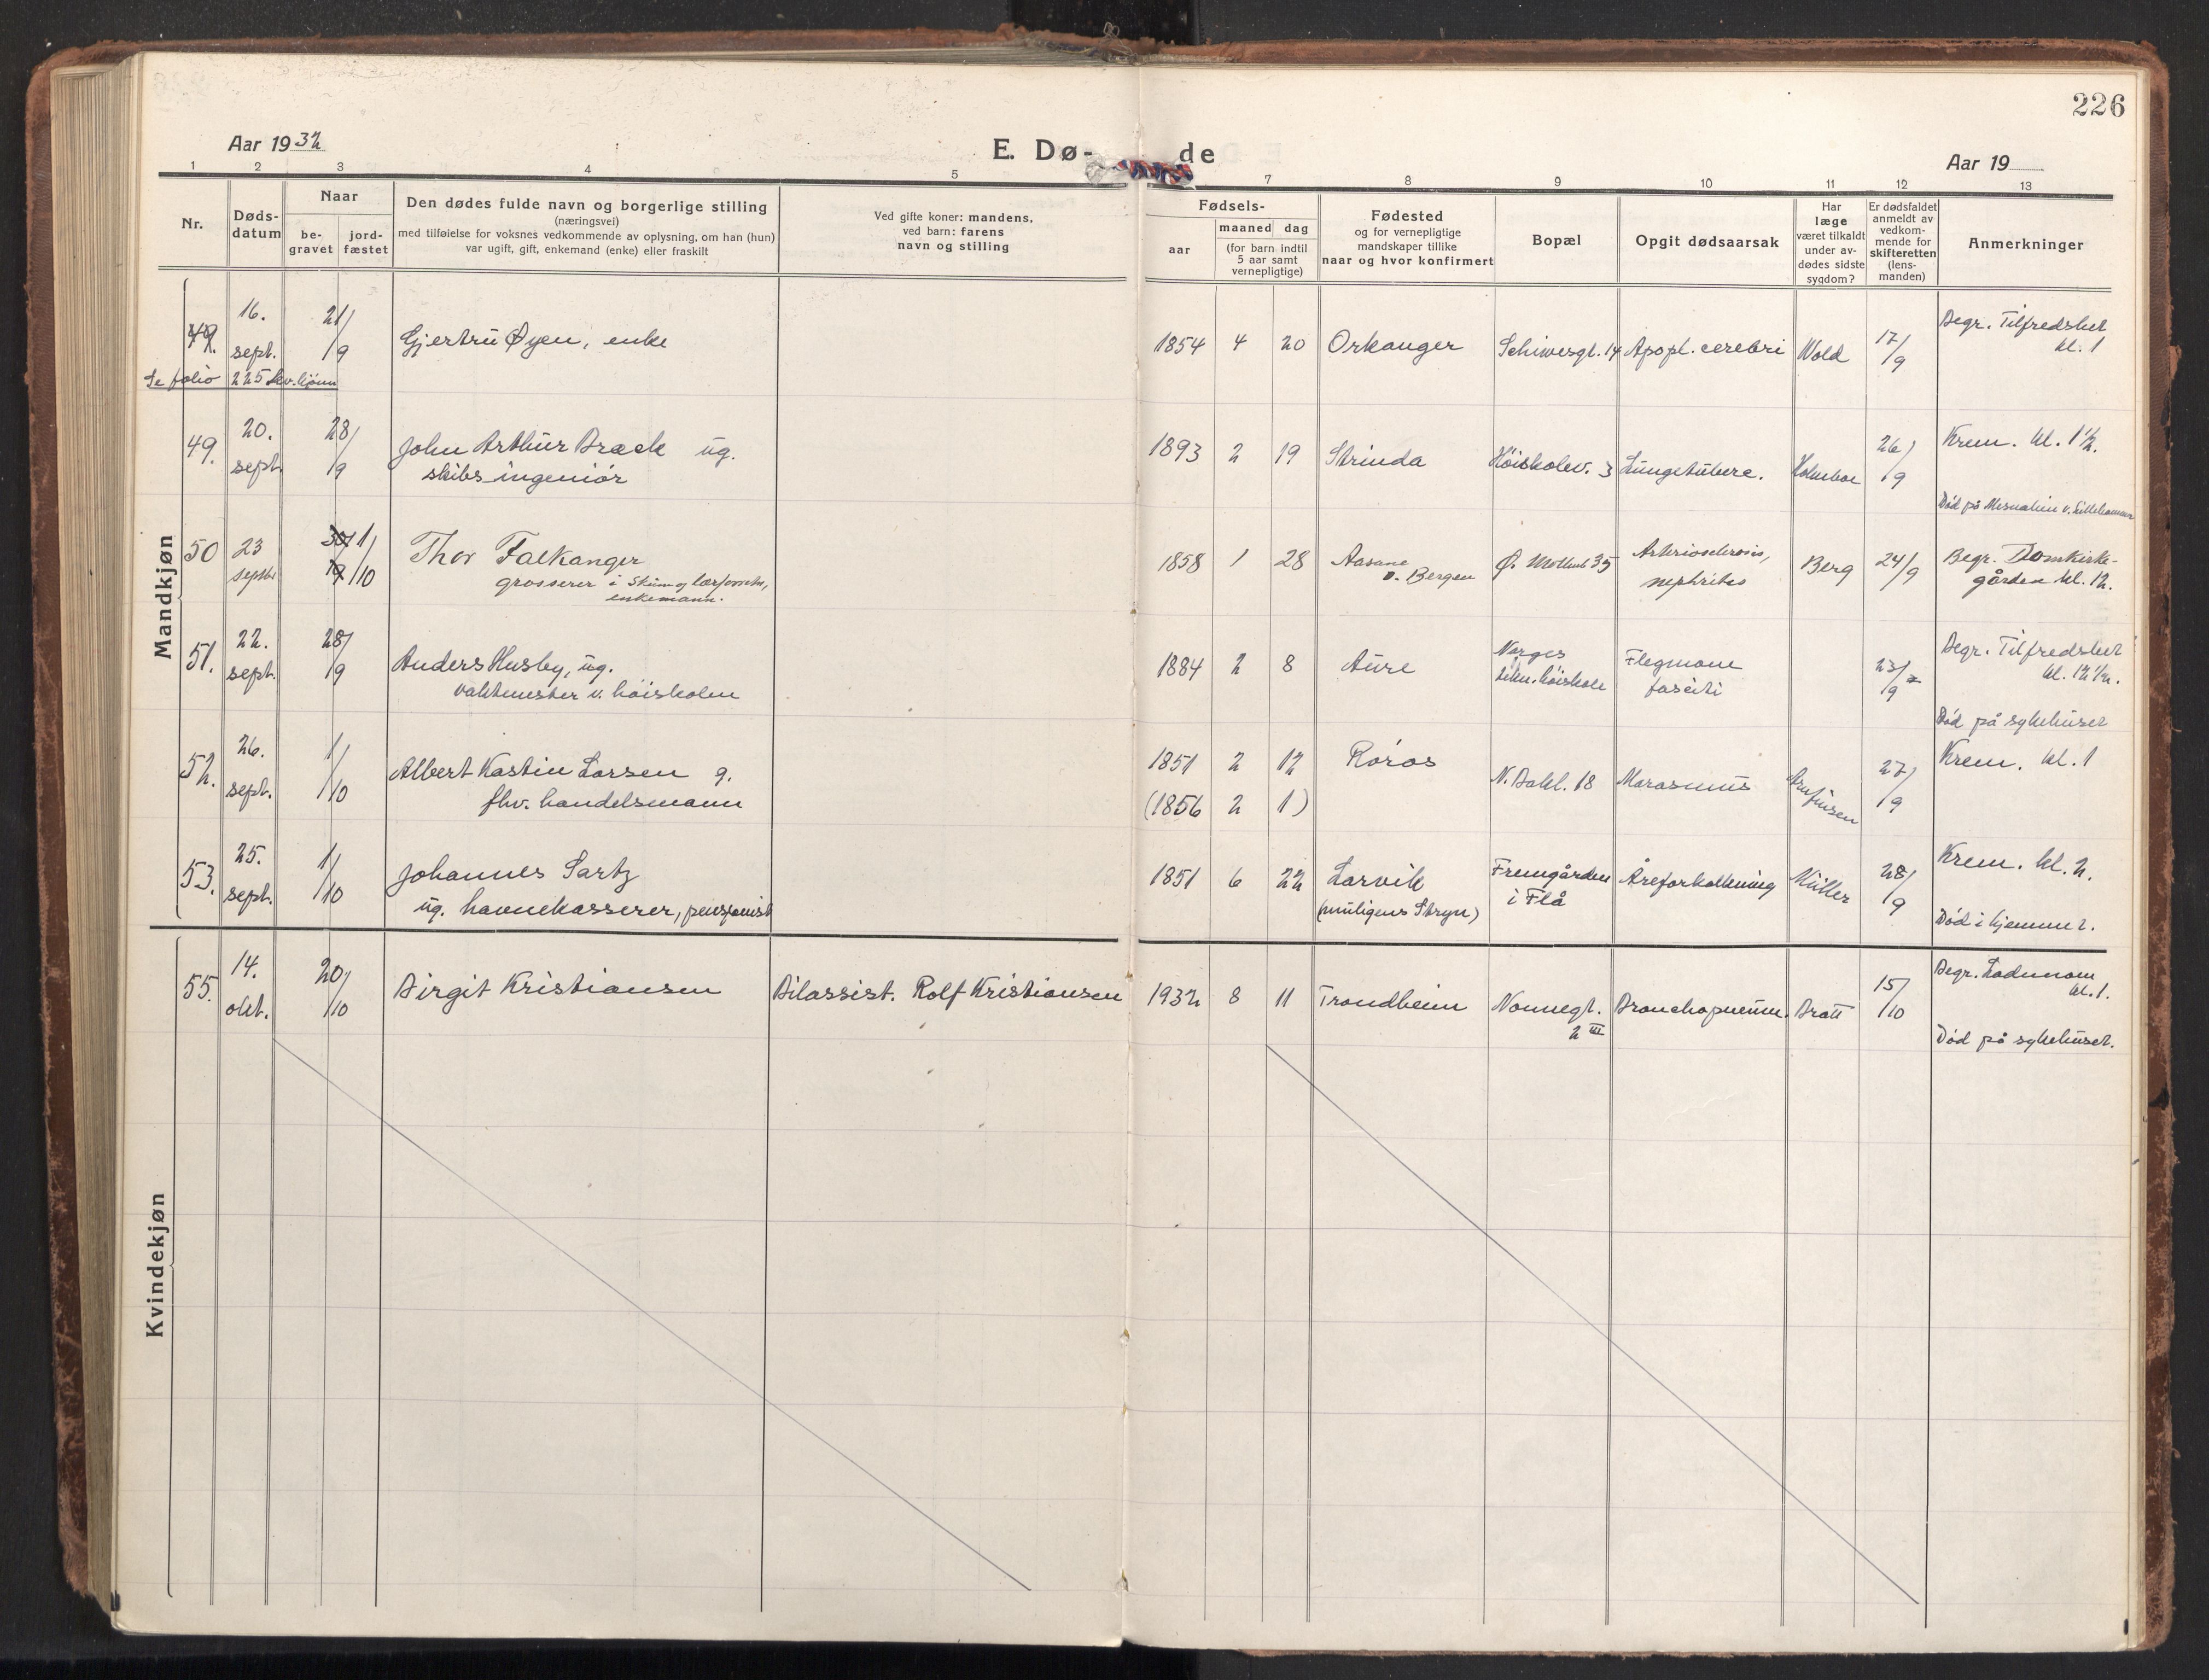 226
Aar 1932
E. Dø- de
Aar 19
1 2 3 4 5 7 8 9 10 11 12 13
Nr.
Døds-
datum
Naar
be-
gravet
jord-
fæstet
Den dødes fulde navn og borgerlige stilling
(næringsvei)
med tilføielse for voksnes vedkommende av oplysning, om han (hun)
var ugift, gift, enkemand (enke) eller fraskilt
Ved gifte koner: mandens,
ved barn: farens
navn og stilling
Fødsels-
aar
maaned dag
(for barn indtil
5 aar samt
vernepligtige)
Fødested
og for vernepligtige
mandskaper tillike
naar og hvor konfirmert
Bopæl
Opgit dødsaarsak
Har
læge
været tilkaldt
under av-
dødes sidste
sygdom?
Er dødsfaldet
anmeldt av
vedkom-
mende for
skifteretten
(lens-
manden)
Anmerkninger
Mandkjøn
49. 16. sept. 21/9
Gjertru Øyen, enke
1854 4 20 Orkanger Schiwesgt. 14 Apopl. cerebri Wold 17/9
Begr. Tilfredshet
kl. 1
Se folio 225 kv.kjønn
49. 20. sept. 28/9
John Arthur Brack ug.
skibsingeniør
1893 2 19 Strinda Höiskolev. 3 Lungetuberc. Holmboe 26/9
Krem. kl. 1 1/2.
Död på Mesnalien v. Lillehammer
50 23 septbr 30/9 1/10
Thor Falkanger
grosserer i
enkemann.
1858 1 28 Aasane
v. Bergen
Ø. Møllenb 35
Arteriosclerosis,
nephritis
Berg 24/9
Begr. Domkirke-
gården kl. 12.
51. 22. sept. 28/9
Anders Husby, ug.
vaktmester v. höiskolen
1884 2 8 Aure
Norges
tekn. höiskole
Flegmone
fasciti
23/9
Begr. Tilfredshet
kl. 12 1/2.
Död på sykehuset
52. 26. sept. 1/10
Albert Kastin Larsen g.
fhv. handelsmann
1851 2 12 Röros
(1856 2 1)
N. Bakl. 18 Marasmus 27/9
Krem. kl. 1
53. 25. sept. 1/10
Johannes Sartz
ug. havnekasserer, pensjonist
1851 6 22 Larvik
(muligens Stryn)
Fremgården
i Flå
Åreforkalkning Müller 28/9
Krem. kl. 2.
Död i hjemmet.
Kvindekjøn
55. 14. okt. 20/10
Birgit Kristiansen
Bilassist. Rolf Kristiansen
1932 8 11 Trondheim Nonnegt.
2 III
Bronchopneum. Bratt 15/10
Begr. Lademoen
kl. 1.
Död på sykehuset.